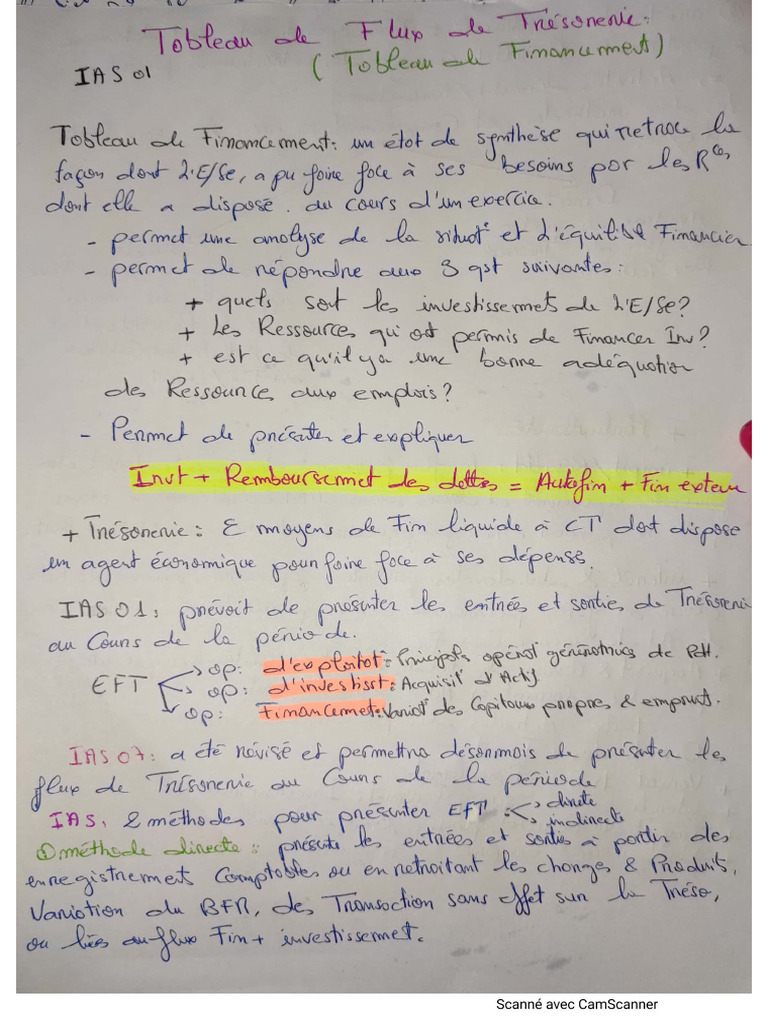 Tableau de Flux de Trésorerie:
(Tableau de Financement)
IAS 01
Tableau de Financement: un état de synthèse qui retrace la
façon dont L'E/Se, a pu faire face à ses besoins par les Rces
dont elle a disposé. au cours d'un exercice.
- permet une analyse de la situat° et L'équilibre Financier
- permet de répondre aux 3 qst suivantes:
+ quels sont les investissemets de L'E/Se?
+ Les Ressources qui ont permis de Financer Inv?
+ est ce qu'il ya une bonne adéquation
des Ressource aux emplois?
- Permet de présenter et expliquer
Invt + Remboursemet des dettes = Autofin + Fin exteur
+ Trésorerie: moyens de Fin liquide à CT dot dispose
un agent économique pour faire face à ses dépense.
IAS 01: prévoit de présenter les entrées et sorties de Trésorerie
au Cours de la période.
EFT
op: d'exploitat°: Principals opérat génératrices de
op: d'investisst: Acquisit° d'Actif
op: Financemet: Variat° des Capitaux propres & emprunt.
IAS 07: a été révisé et permettra désormais de présenter les
flux de Trésorerie au Cours de la période
IAS, 2 méthodes pour présenter EFT: directe
indirecte
① méthode directe: présente les entrées et sorties à partir des
enregistremet Comptables ou en retraitant les charges & Produits,
Variation du BFR, des Transaction sans effet sur la Tréso,
ou liées au flux Fin + investissemet.
Scanné avec CamScanner